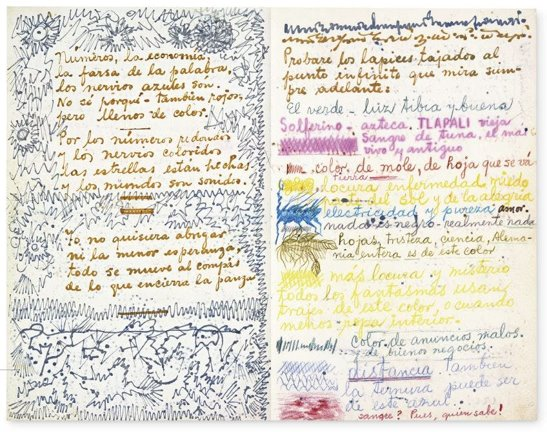 Números, la economía
la farsa de la palabra,
los nervios azules son.
No cé porqué - también rojos,
pero llenos de color.
Por los números redondos
y los nervios coloridos
las estrellas están hechas
y los mundos son sonidos.
Yo, no quisiera abrigar
ni la menor esperanza,
todo se mueve al compás
de lo que encierra la panza
Probaré los lapices tajados al
punto infinito que mira siem-
pre adelante:
El verde - luz tibia y buena
Solferino - azteca. TLAPALI vieja
sangre de tuna, el más
vivo y antiguo
color de mole, de hoja que se va
tierra
locura enfermedad miedo
parte del sol y de la alegría
electricidad y pureza amor.
nada es negro - realmente nada
hojas, tristeza, ciencia, Alema-
nia entera es de este color
más locura y misterio
todos los fantasmas usan
trajes de este color, o cuando
menos ropa interior.
color de anuncios malos
y de buenos negocios.
distancia. Tambien
la ternura puede ser
de este azul
sangre? Pues, quién sabe!